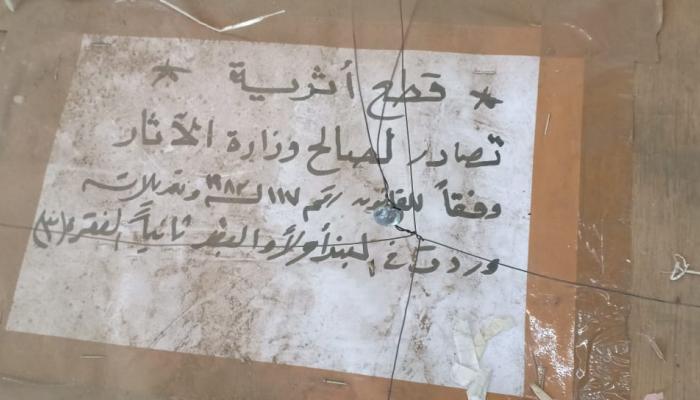 * قطع أثرية *
تصادر لصالح وزارة الآثار
وفقاً للقانون رقم ١١٧ لسنة ١٩٨٣ وتعديلاته
وردت في البند أولاً والبند ثانياً الفقرة (٣)